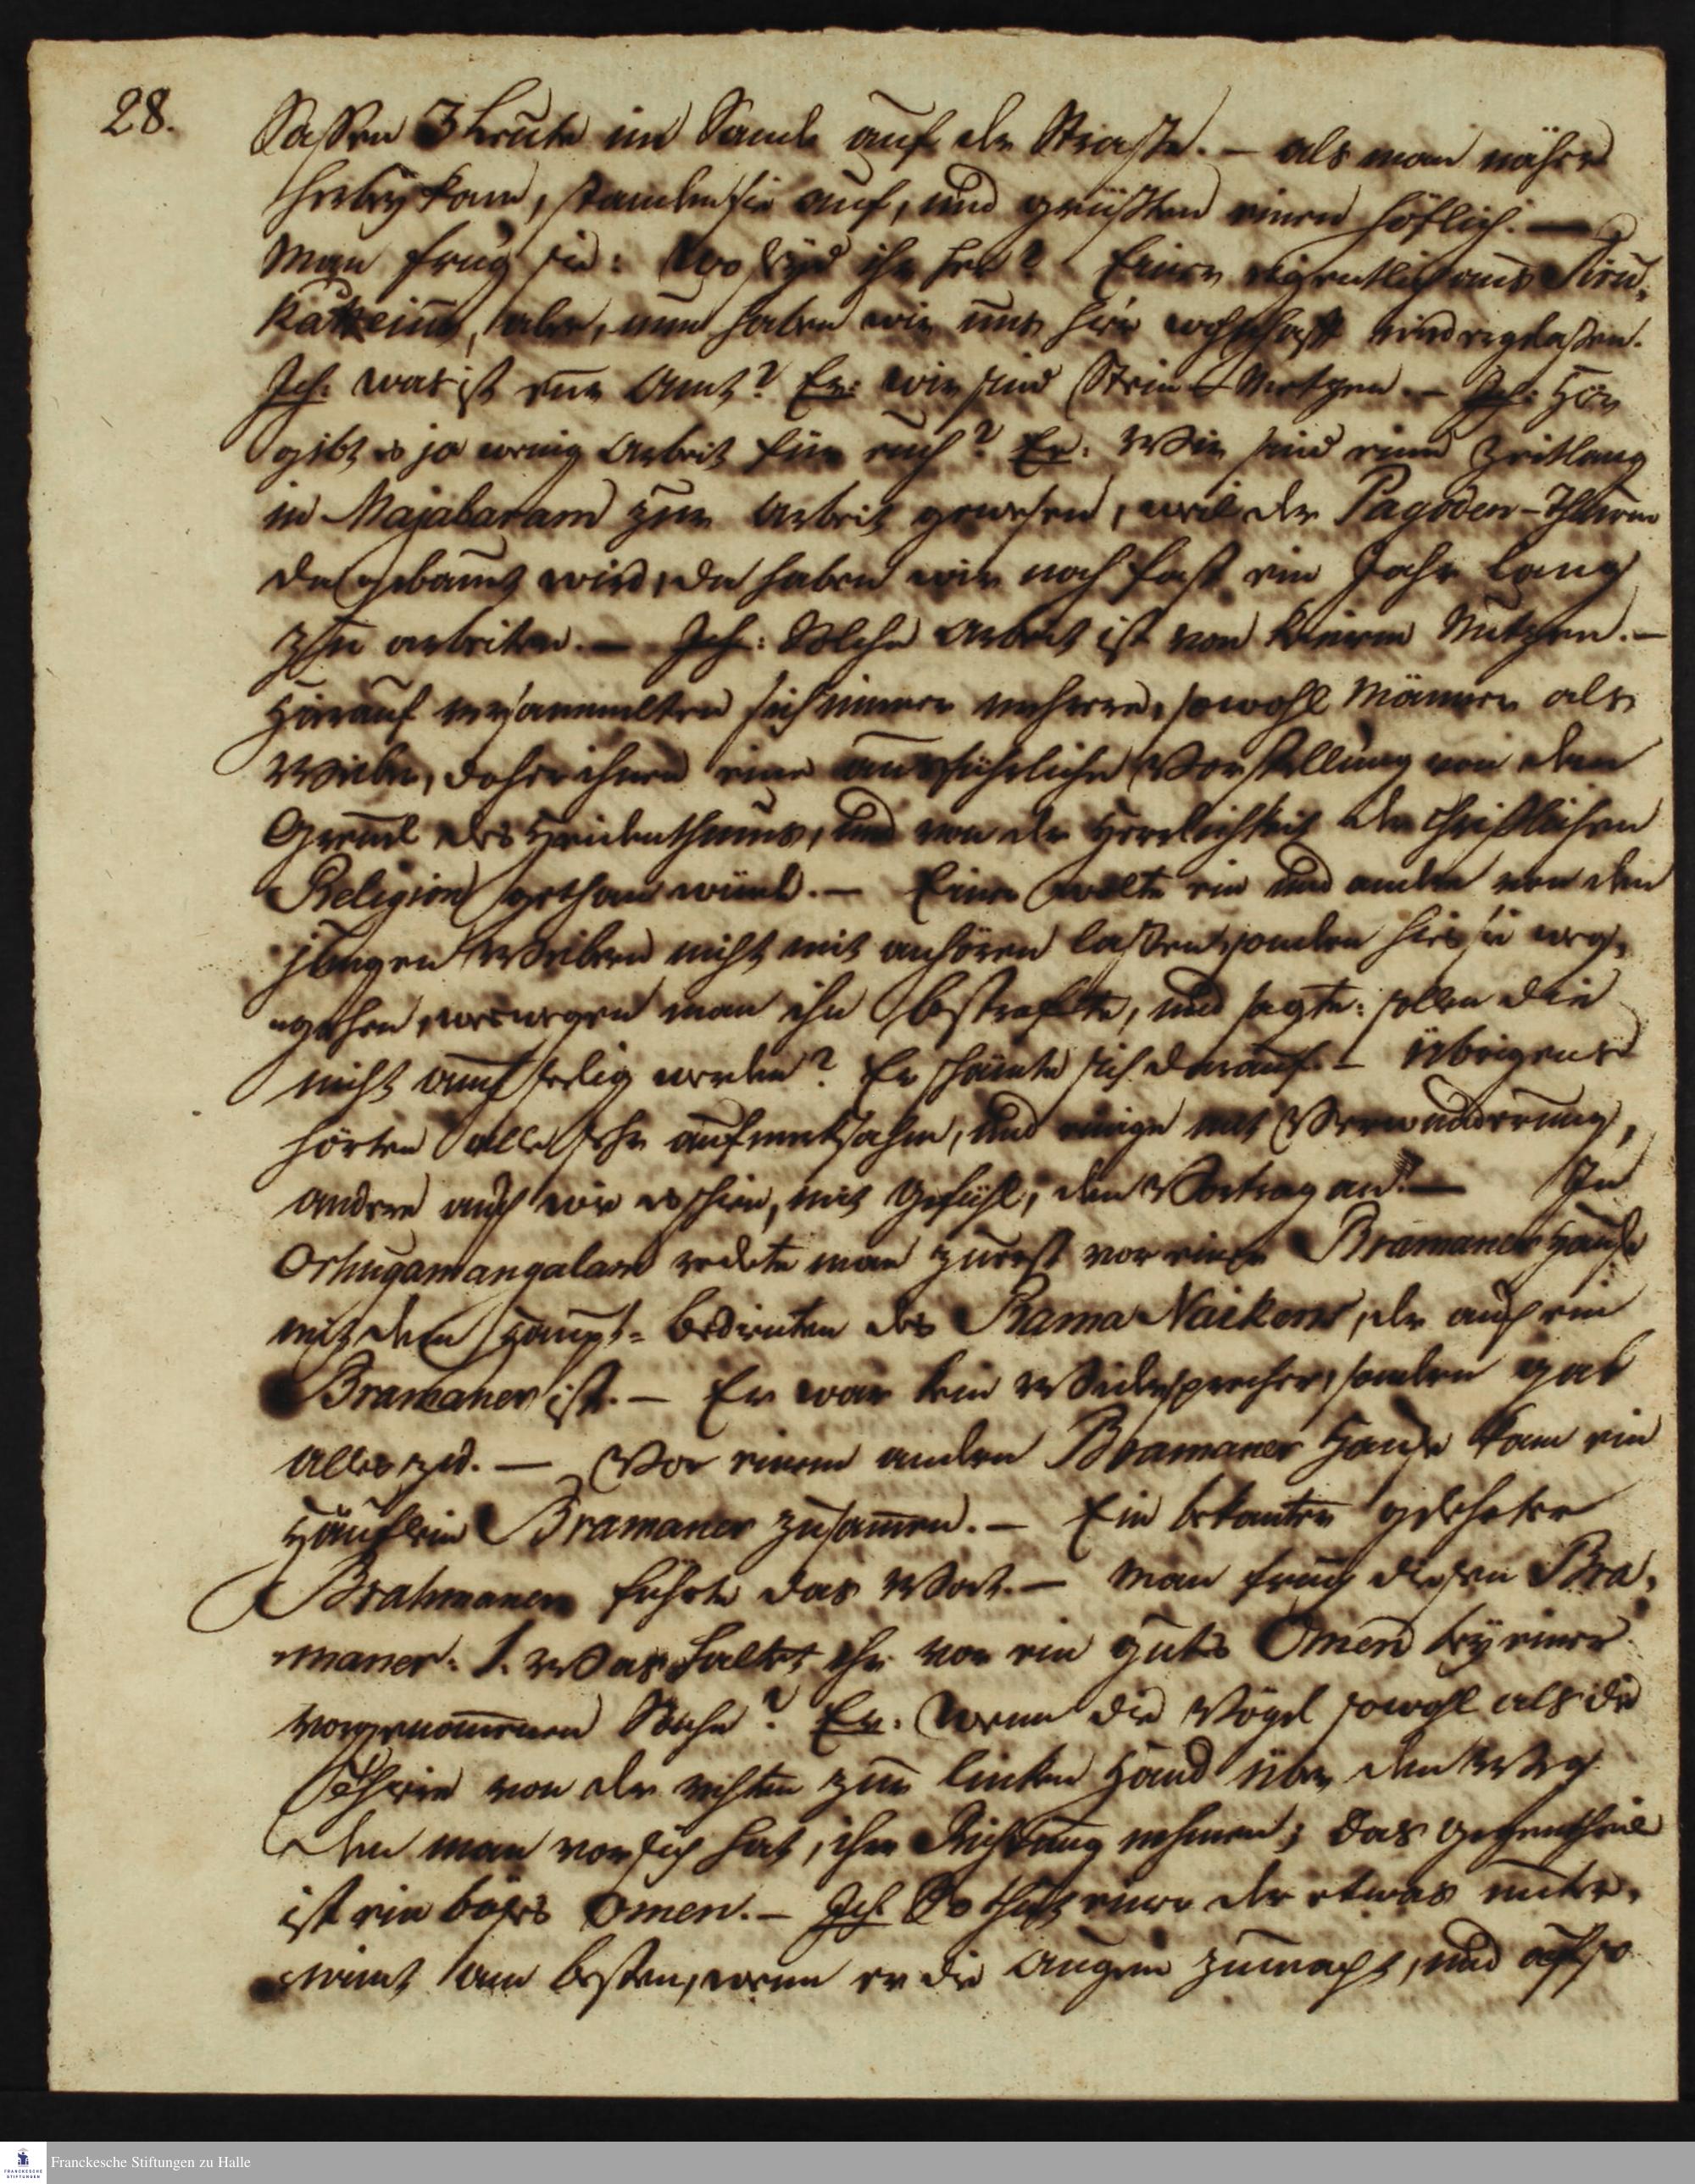 28.
Saßen 3 Leute im Sande auf der Straße. – als man näher
herbey kam, standen sie auf, und grüßten einen höflich. –
Man frug sie: Wo seyd ihr her? Einer eigentlich aus Siru-
kattein, aber, nun haben wir uns hier wohnhaft niedergelaßen.
Ich: was ist eur Amt? Er: wir sind Stein-Metzen. – Ich: Hier
gibt es ja wenig Arbeit für euch? Er: Wir sind eine Zeitlang
in Majabaram zur Arbeit gewesen, weil der Pagoden-Thurm
da gebaut wird, da haben wir noch fast ein Jahr lang
zu arbeiten. – Ich: Solche Arbeit ist von keinem Nutzen. –
Hierauf versammelten sich immer mehrere, sowohl Männer als
Weiber, daher ihnen eine ausführliche Vorstellung von dem
Greuel des Heidenthums, und von der Herrlichkeit der Christlichen
Religion gethan wurde. – Einer wolte ein und andre von den
jungen Weibern nicht mit anhören laßen, sondern hies sie weg-
gehen, weswegen man ihn bestrafte, und sagte: sollen die
nicht auch seelig werden? Er schämte sich darauf. – Übrigens
hörten alle sehr aufmerksahm, und einige mit Verwunderung,
andere auch wie es schien, mit Gefühl, den Vortrag an. – In
Orhugamangalam redete man zuerst vor einem Bramaner Hause
mit dem Haupt-Bedienten des Rama Naikens, der auch ein
Bramaner ist. – Er war kein Widersprecher, sondern gab
alles zu. – Vor einem andern Bramaner Hause kam ein
Häuflein Bramaner zusammen. – Ein bekanter gelehrter
Brahmaner führte das Wort. – Man frug diesen Bra-
maner: 1. Was haltet ihr vor ein gutes Omen bey einer
vorgenommenen Sache? Er: Wenn die Vögel sowohl als die
Thiere von der rechten zur linken Hand über den Weg
den man vor sich hat, ihre Richtung nehmen; das Gegentheil
ist ein böses Omen. – Ich So thut einer der etwas unter-
nimt am besten, wenn er die Augen zumacht, und also
Franckesche Stiftungen zu Halle